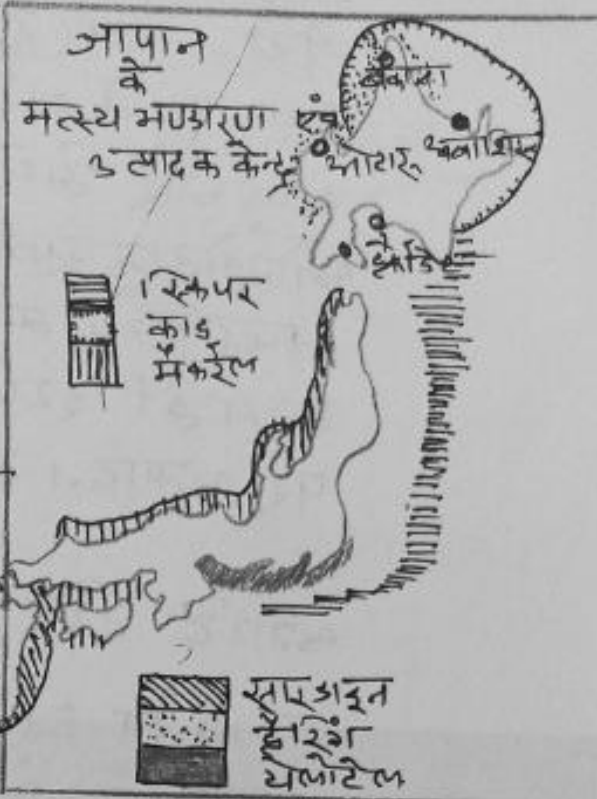 जापान
के
मत्स्य भण्डारण एवं
उत्पादक केन्द्र
वकाना
ओटारू
अवाशिरू
हैकोडेट
स्किपर
काड
मैकरेल
सारडाइन
हैरिंग
यलोटेल